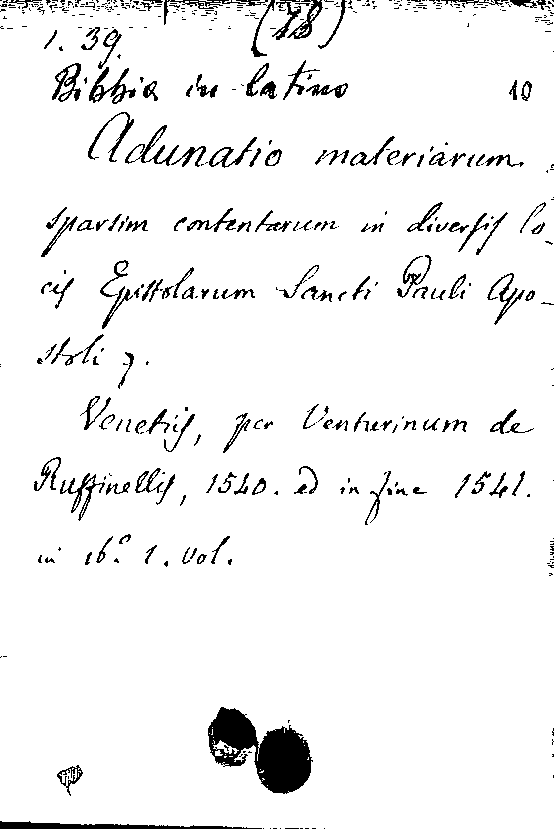 (78)
1. 39.
Bibbia in latino 10
Adunatio materiarum
sparsim contentarum in diversis lo-
cis Epistolarum Sancti Pauli Apo-
stoli
Venetiis, per Venturinum de
Ruffinellis, 1540. ed in fine 1541.
in 16.º 1. vol.